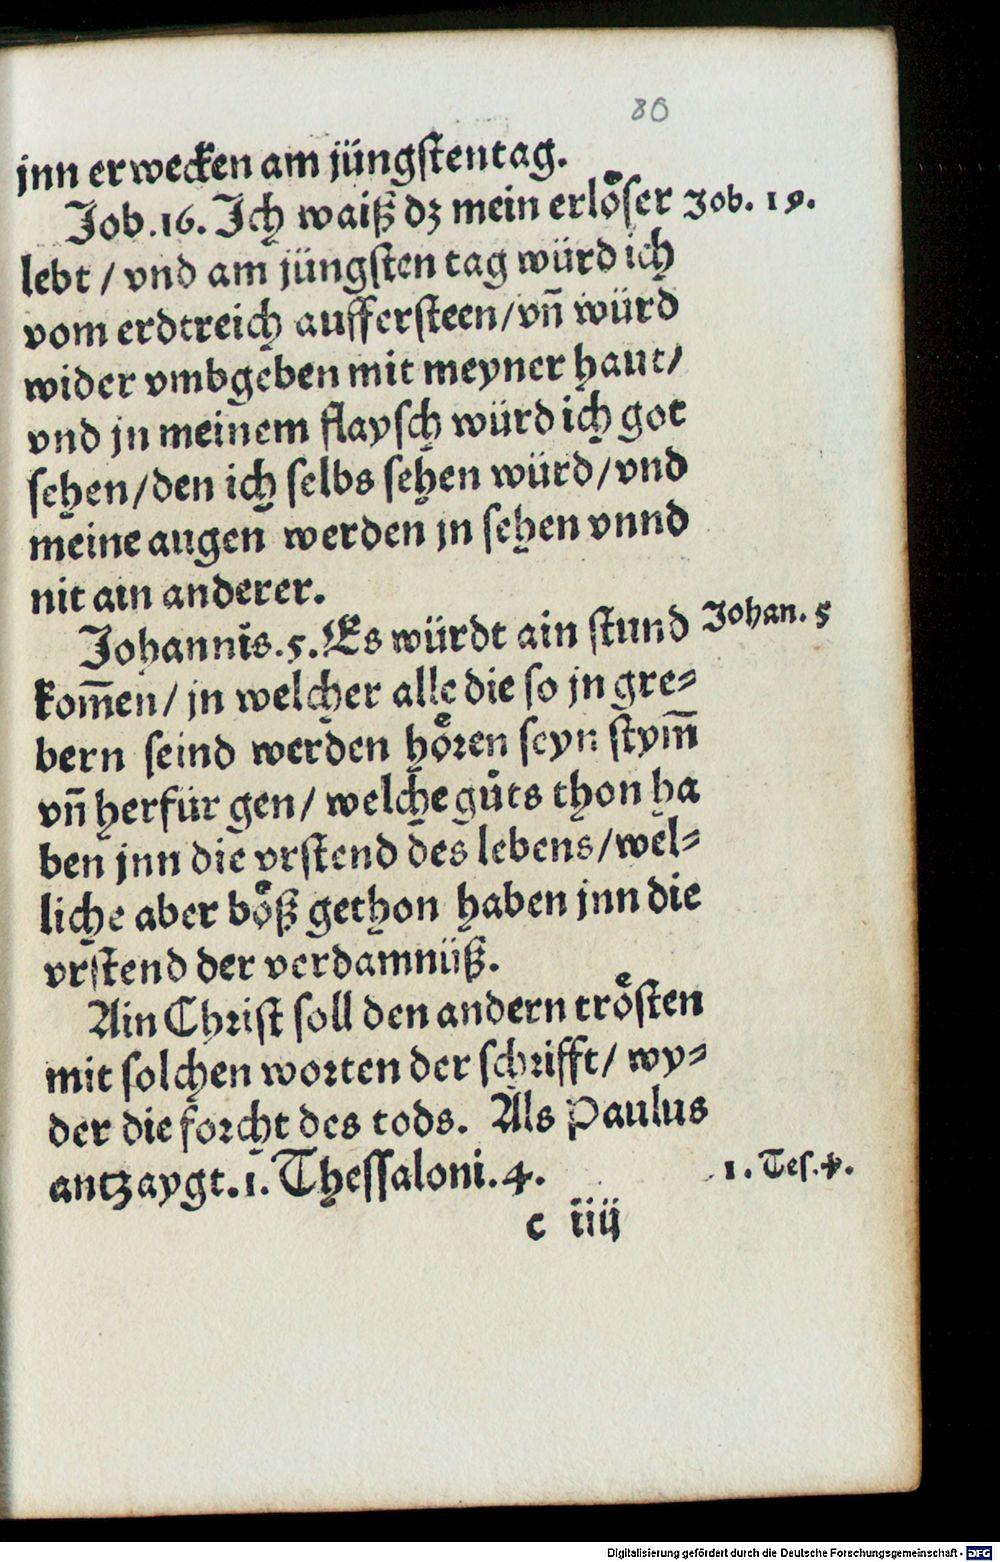 80
jnn erwecken am jüngſtentag.
Job.16. Ich waiß dz mein erlöſer Job. 19.
lebt / vnd am jüngſten tag würd ich
vom erdtreich aufferſteen/vñ würd
wider vmbgeben mit meyner haut/
vnd jn meinem flayſch würd ich got
ſehen/den ich ſelbs ſehen würd/vnd
meine augen werden jn ſehen vnnd
nit ain anderer.
Johannis.5. Es würdt ain ſtund Johan. 5
kom̃en/ jn welcher alle die ſo jn gre⸗
bern ſeind werden hoͤꝛen ſeyn ſtym̃
vñ herfür gen/ welche gůts thon ha
ben jnn die vrſtend des lebens/wel⸗
liche aber boͤß gethon haben jnn die
vrſtend der verdamnüß.
Ain Chꝛiſt ſoll den andern troͤſten
mit ſolchen woꝛten der ſchꝛifft/ wy⸗
der die foꝛcht des tods. Als Paulus
antzaygt.1. Theſſaloni.4. 1. Teſ.4.
c iiij
Digitalisierung gefördert durch die Deutsche Forschungsgemeinschaft - DFG